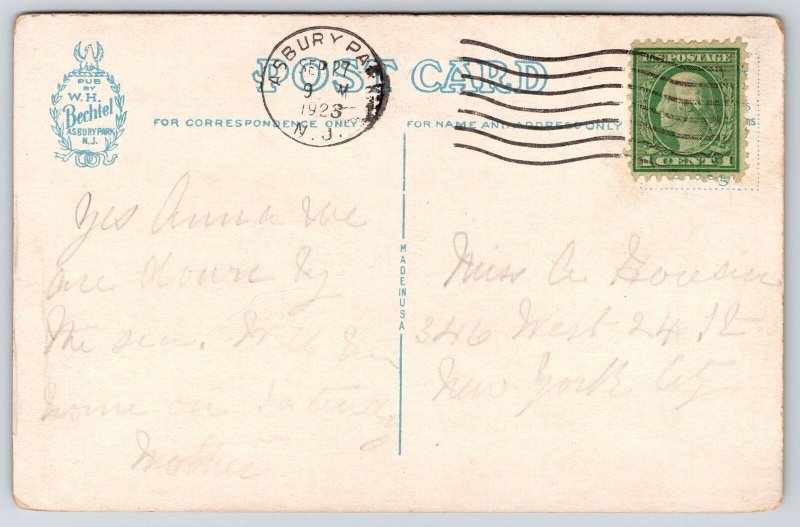 POST CARD
PUB
BY
W.H.
Bechtel
ASBURY PARK
N.J.
ASBURY PARK
SEP 27
9
1923
N.J.
U.S. POSTAGE
1 CENT 1
FOR CORRESPONDENCE ONLY
FOR NAME AND ADDRESS ONLY
MADE IN USA
Yes Anna we
are down by
the sea. Will be
home on Saturday
Mother
Miss A
346 West 24 St
New York City